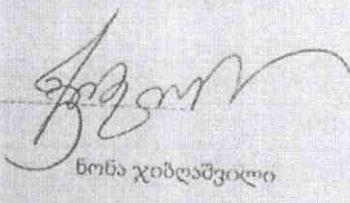 ნონა ჯიბღაშვილი